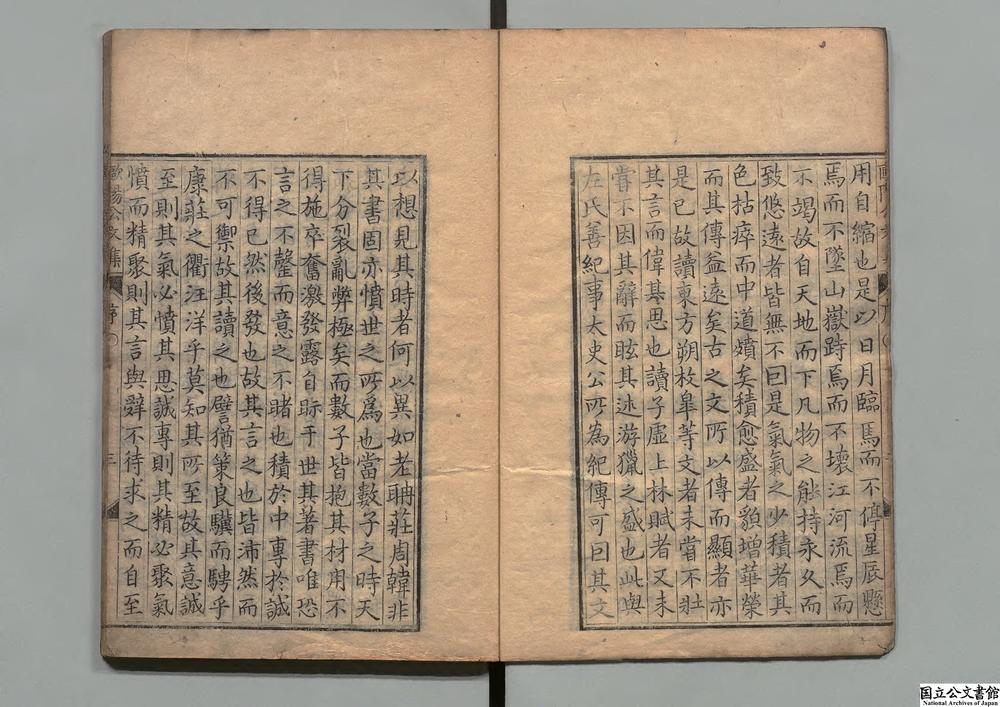 用自縮也是以日月臨焉而不停星辰懸
焉而不墜山嶽跱焉而不壞江河流焉而
不竭故自天地而下凡物之能持永久而
致悠遠者皆無不曰是氣氣之少積者其
色枯瘁而中道嬇矣積愈盛者顏增華榮
而其傳益遠矣古之文所以傳而顯者亦
是已故讀東方朔枚皐等文者未嘗不壯
其言而偉其思也讀子虛上林賦者又未
嘗不因其辭而眩其述游獵之盛也此與
左氏善紀事太史公所為紀傳可曰其文
以想見其時者何以異如老聃莊周韓非
其書固亦憤世之所為也當數子之時天
下分裂亂弊極矣而數子皆抱其材用不
得施卒奮激發露自眎于世其著書唯恐
言之不罄而意之不睹也積於中專於誠
不得已然後發也故其言之也皆沛然而
不可禦故其讀之也譬猶策良驥而騁乎
康莊之衢汪洋乎莫知其所至故其意誠
至則其氣必憤其思誠專則其精必聚氣
憤而精聚則其言與辭不待求之而自至
歐陽公文集
序
三
国立公文書館
National Archives of Japan